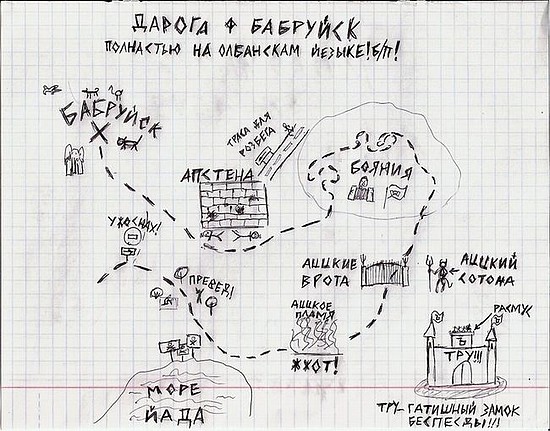 ДАРОГА Ф БАБРУЙСК
ПОЛНАСТЬЮ НА ОЛБАНСКАМ ЙЕЗЫКЕ! Б/П!
БАБРУЙСК
ТРАСА ДЛЯ
РОЗБЕГА
АПСТЕНА
БОЯНИЯ
УЖОСНАХ!
ПРЕВЕД!
АЦЦКИЕ
ВРОТА
АЦЦКИЙ
СОТОНА
АЦЦКОЕ
ПЛАМЯ
ЖЖОТ!
РАСМУС
Ъ
ТРУ!!!
МОРЕ
ЙАДА
ТРУ-ГАТИШНЫЙ ЗАМОК
БЕСПЕСДЫ!!!